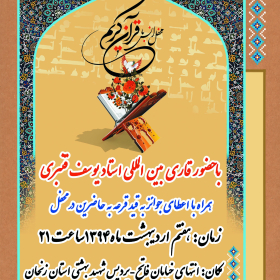 محفل انس با قرآن کریم
باحضور قاری بین المللی استاد یوسف قنبری
همراه با اعطای جوائز به قید قرعه به حاضرین در محفل
زمان: هفتم اردیبهشت ماه ۱۳۹۴ ساعت ۲۱
مکان: انتهای خیابان فاتح - پردیس شهید بهشتی استان زنجان